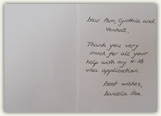 Dear Pam, Cynthia and
Venkat,
Thank you very
much for all your
help with my H-1B
visa application.
Best wishes,
Daniela